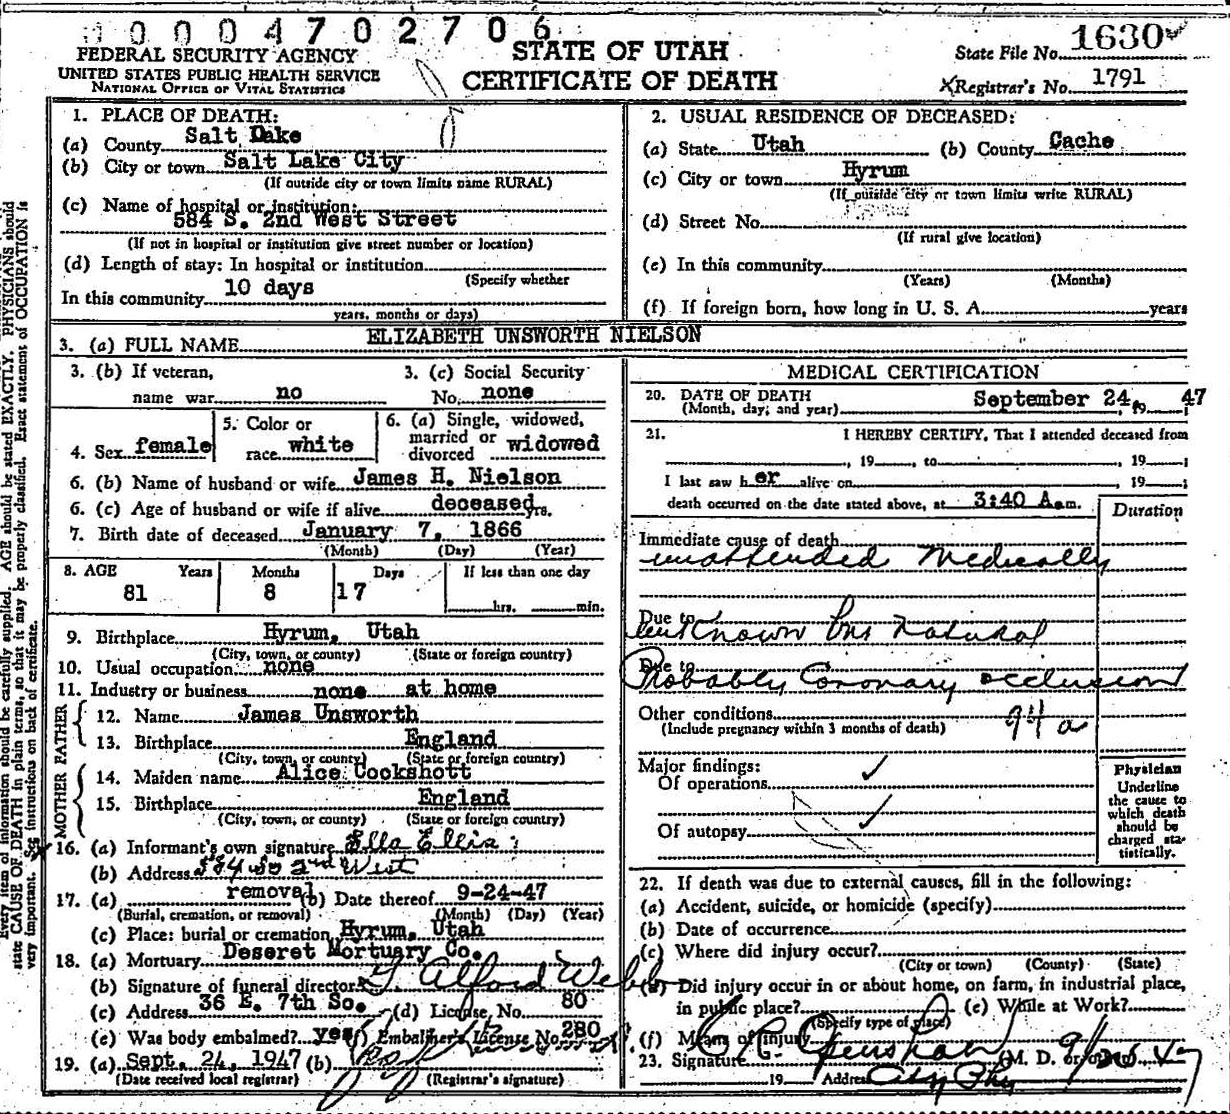 00004702706
FEDERAL SECURITY AGENCY
UNITED STATES PUBLIC HEALTH SERVICE
NATIONAL OFFICE OF VITAL STATISTICS
STATE OF UTAH
CERTIFICATE OF DEATH
State File No. 1630
Registrar's No. 1791
1. PLACE OF DEATH:
(a) County Salt Lake
(b) City or town Salt Lake City
(If outside city or town limits name RURAL)
(c) Name of hospital or institution:
584 S. 2nd West Street
(If not in hospital or institution give street number or location)
(d) Length of stay: In hospital or institution
(Specify whether
In this community 10 days
years, months or days)
2. USUAL RESIDENCE OF DECEASED:
(a) State Utah (b) County Cache
(c) City or town Hyrum
(If outside city or town limits write RURAL)
(d) Street No.
(If rural give location)
(e) In this community
(Years) (Months)
(f) If foreign born, how long in U. S. A. years
3. (a) FULL NAME ELIZABETH UNSWORTH NIELSON
3. (b) If veteran,
name war no
3. (c) Social Security
No. none
4. Sex female
5. Color or
race white
6. (a) Single, widowed,
married or
divorced widowed
6. (b) Name of husband or wife James H. Nielson
6. (c) Age of husband or wife if alive deceased yrs.
7. Birth date of deceased January 7, 1866
(Month) (Day) (Year)
8. AGE Years Months Days If less than one day
81 8 17 hrs. min.
9. Birthplace Hyrum, Utah
(City, town, or county) (State or foreign country)
10. Usual occupation none
11. Industry or business none at home
FATHER
12. Name James Unsworth
13. Birthplace England
(City, town, or county) (State or foreign country)
MOTHER
14. Maiden name Alice Cookshott
15. Birthplace England
(City, town, or county) (State or foreign country)
16. (a) Informant's own signature Ella Ellis
(b) Address 584 So 2nd West
17. (a) removal (b) Date thereof 9-24-47
(Burial, cremation, or removal) (Month) (Day) (Year)
(c) Place: burial or cremation Hyrum, Utah
18. (a) Mortuary Deseret Mortuary Co.
(b) Signature of funeral director
(c) Address 36 E. 7th So. (d) License No. 80
(e) Was body embalmed? yes (f) Embalmer's License No. 280
19. (a) Sept. 24, 1947 (b)
(Date received local registrar) (Registrar's signature)
MEDICAL CERTIFICATION
20. DATE OF DEATH
(Month, day, and year) September 24, 19 47
21. I HEREBY CERTIFY, That I attended deceased from
, 19 , to , 19 ;
I last saw her alive on , 19 ;
death occurred on the date stated above, at 3:40 A.m.
Duration
Immediate cause of death
unattended Medically
Due to
unknown but Natural
Due to
Probably Coronary occlusion
Other conditions 94 a
(Include pregnancy within 3 months of death)
Major findings:
Of operations
Of autopsy
Physician
Underline
the cause to
which death
should be
charged sta-
tistically.
22. If death was due to external causes, fill in the following:
(a) Accident, suicide, or homicide (specify)
(b) Date of occurrence
(c) Where did injury occur?
(City or town) (County) (State)
(d) Did injury occur in or about home, on farm, in industrial place,
in public place? (e) While at Work?
(Specify type of place)
(f) Means of injury
23. Signature (M. D. or
19 Address City Phy
Every item of information should be carefully supplied. AGE should be stated EXACTLY. PHYSICIANS should
state CAUSE OF DEATH in plain terms, so that it may be properly classified. Exact statement of OCCUPATION is
very important. See instructions on back of certificate.